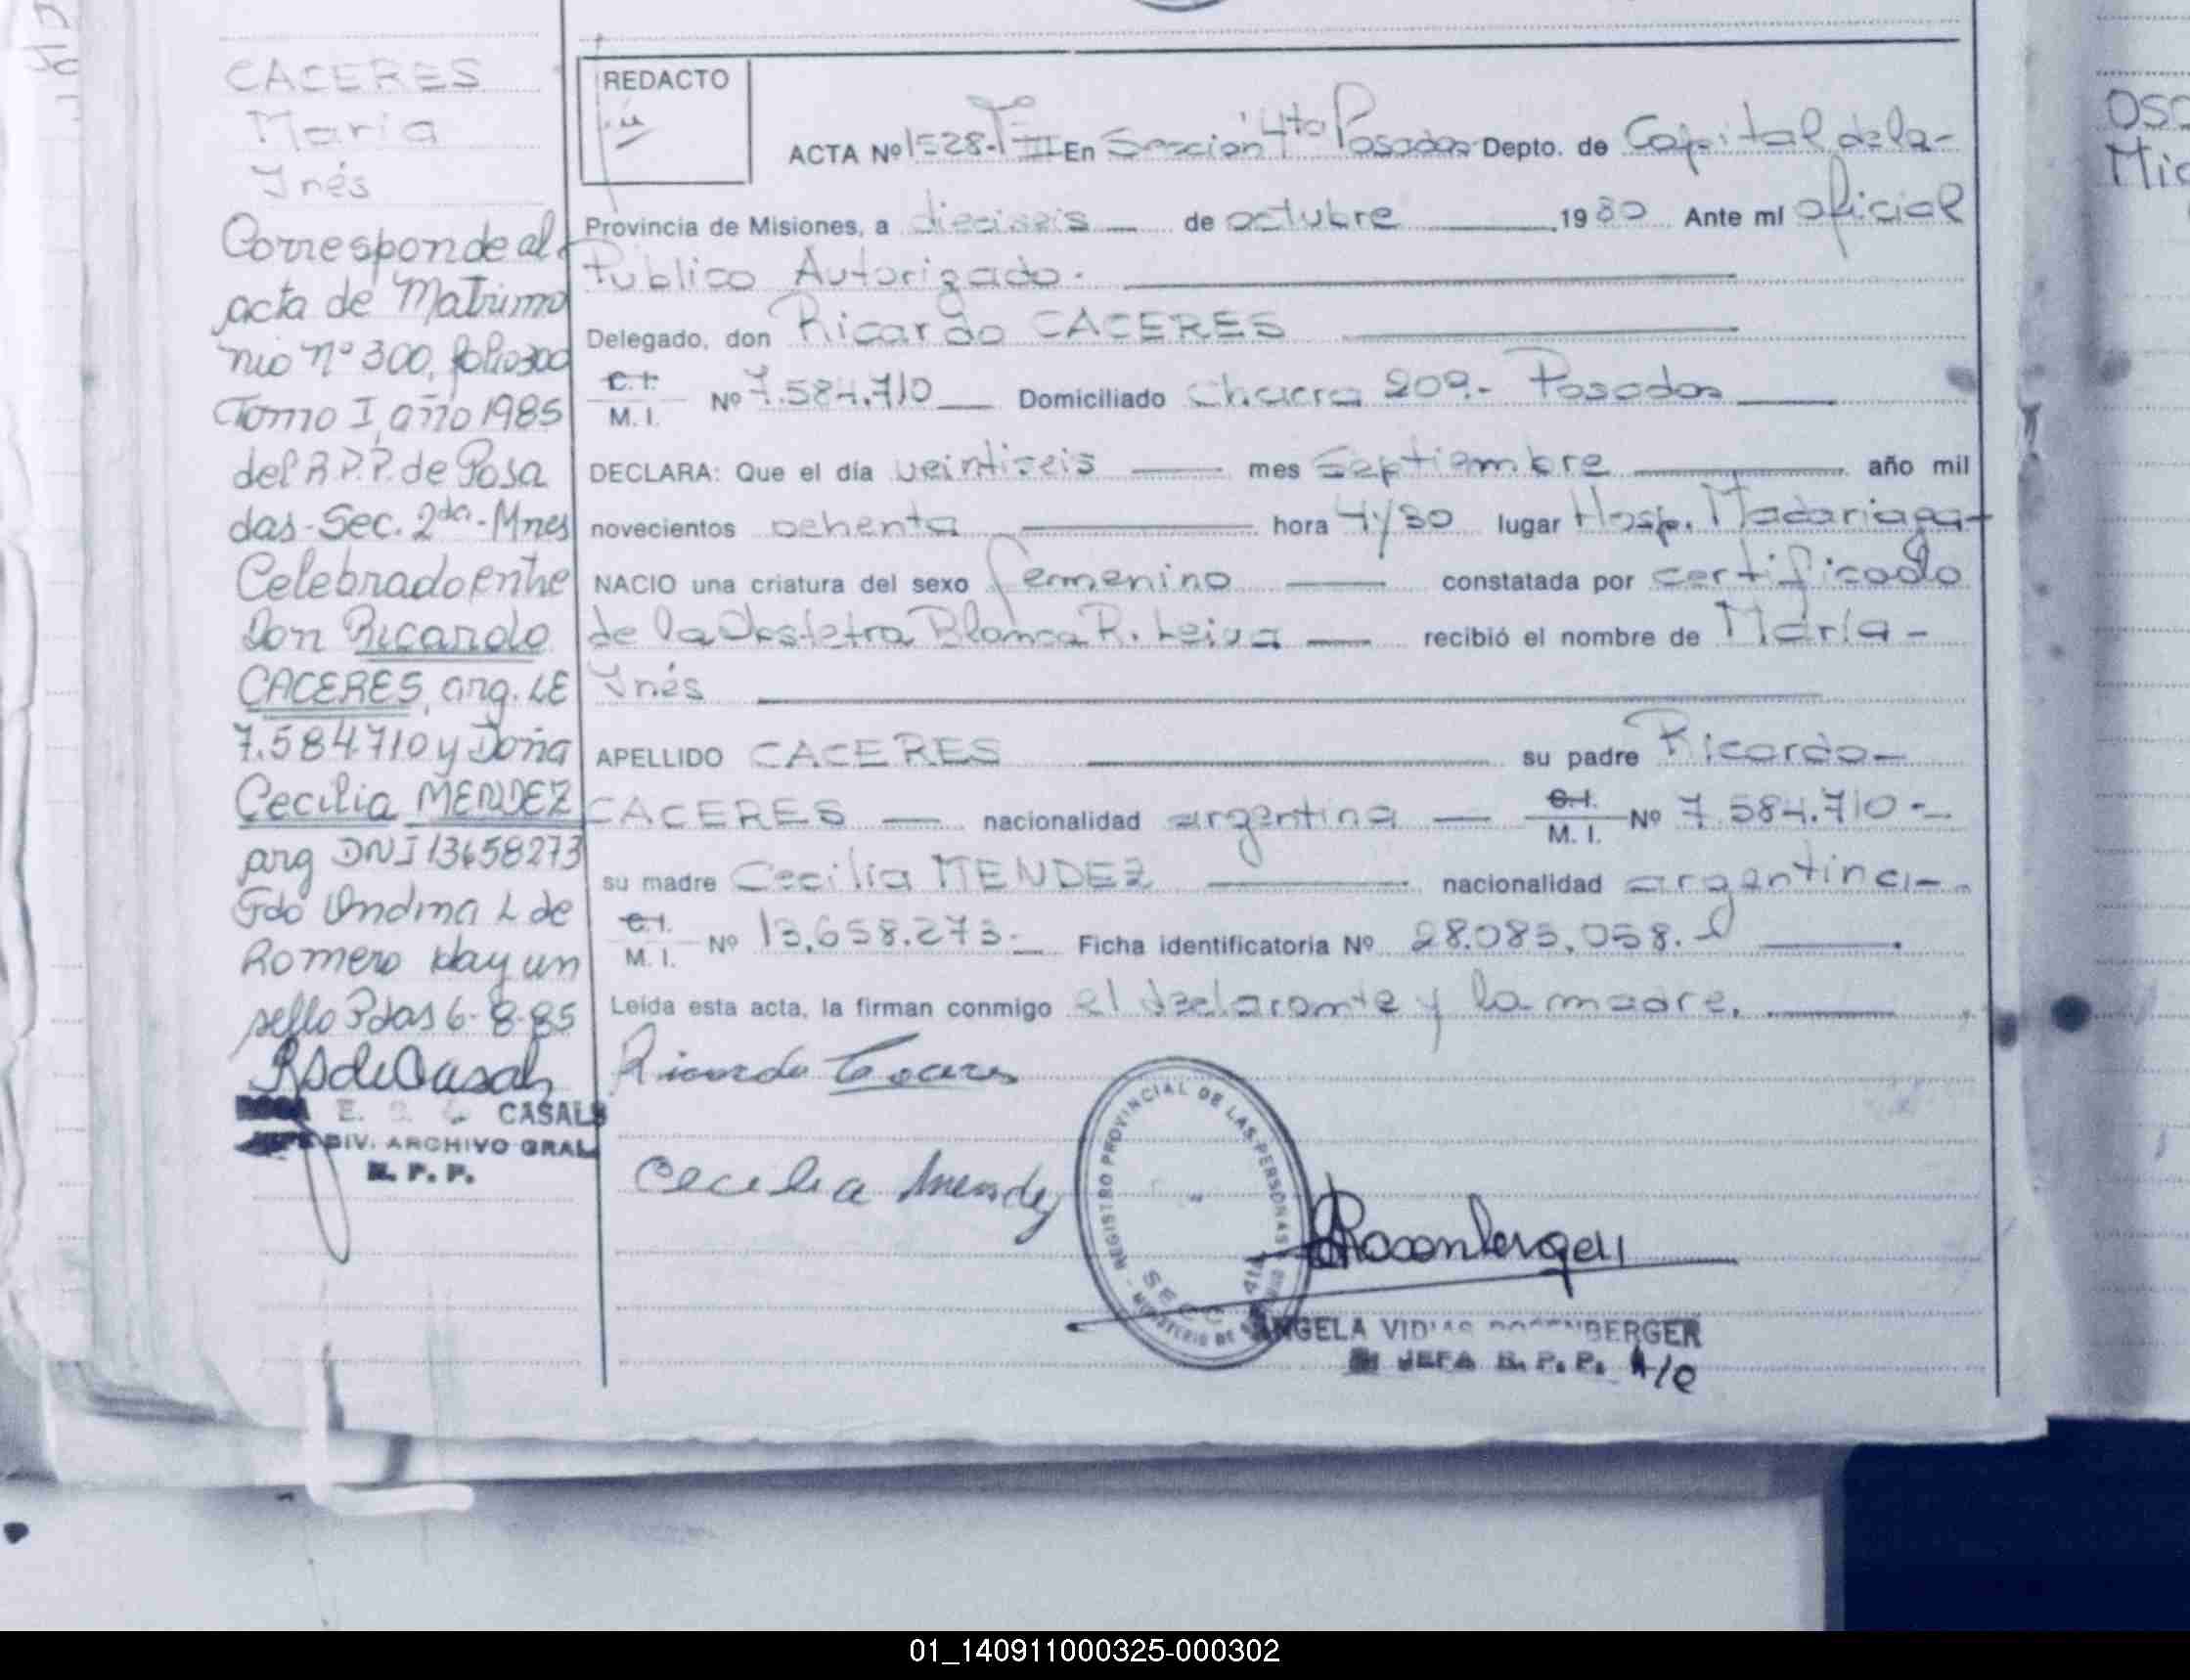 CACERES
María
Inés
Corresponde al
acta de Matrimo
nio nº 300, folio 300
Tomo I, año 1985
del R.P.P. de Posa
das - Sec. 2da - Mnes
Celebrado entre
Don Ricardo
CACERES, arg. LE
7.584.710 y Doña
Cecilia MENDEZ
arg DNI 13658273
Fdo Ondina L de
Romero Hay un
sello Pdas 6-8-85
CASALS
DIV. ARCHIVO GRAL
R. P. P.
REDACTO
ACTA Nº 1528-T III En Sección 4to Posadas Depto. de Capital de la-
Provincia de Misiones, a dieciseis de octubre 1980 Ante mI oficial
Publico Autorizado.
Delegado, don Ricardo CACERES
C.I.
M. I. Nº 7.584.710 Domiciliado Chacra 209.- Posadas
DECLARA: Que el día veintiseis mes Septiembre año mil
novecientos ochenta hora 4y30 lugar Hosp. Madariaga-
NACIO una criatura del sexo femenino constatada por certificado
de la Obstetra Blanca R. Leiva recibió el nombre de María-
Inés
APELLIDO CACERES su padre Ricardo-
CACERES nacionalidad argentina C.I. M. I. Nº 7.584.710.-
su madre Cecilia MENDEZ nacionalidad argentina-
C.I.
M. I. Nº 13.658.273.- Ficha identificatoria Nº 28.083.058.
Leida esta acta, la firman conmigo el declarante y la madre.
Ricardo Caceres
Cecilia Mendez
REGISTRO PROVINCIAL DE LAS PERSONAS
SECC. 4ta
Rosenberger
ANGELA ROSENBERGER
JEFA R. P. P. A/C
OSC
Mig
01_140911000325-000302